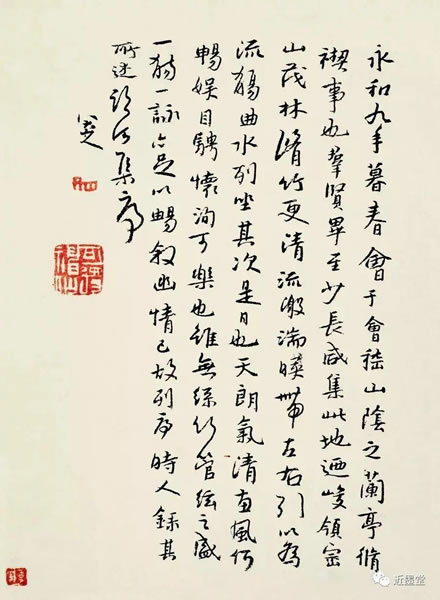 永和九年暮春會于會稽山陰之蘭亭脩
禊事也羣賢畢至少長咸集此地迺峻領崇
山茂林脩竹更清流激湍暎帶左右引以為
流觴曲水列坐其次是日也天朗氣清惠風和
暢娛目騁懷洵可樂也雖無絲竹管絃之盛
一觴一詠亦足以暢敘幽情已故列序時人錄其
所述臨河集序
八大山人
可得神仙
近墨堂